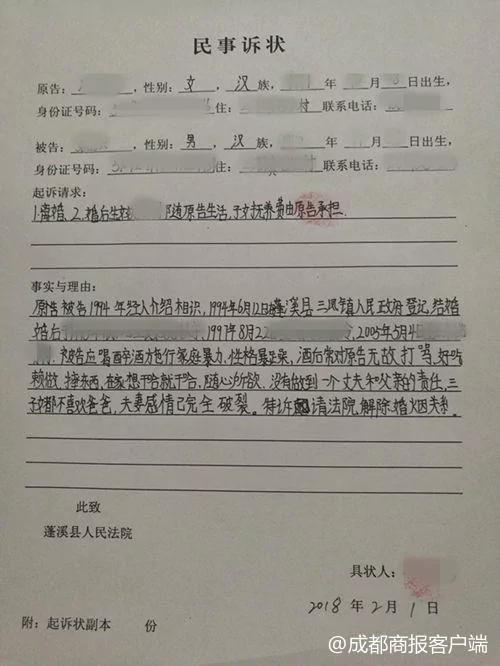 民事诉状
原告: ,性别:女,汉族, 年 月 日出生,
身份证号码: 住: 村 联系电话:
被告: ,性别:男,汉族, 年 月 日出生,
身份证号码: 住: 联系电话:
起诉请求:
1.离婚、2、婚后生 随原告生活,子女抚养费由原告承担.
事实与理由:
原告被告1994年经人介绍相识,1994年6月12日蓬溪县三凤镇人民政府登记,结婚
婚后 1997年8月22 ,2005年5月4
.被告应喝醉酒方施行家庭暴力,性格暴走栗,酒后常对原告无故打骂,好吃
赖做,摔东西,在家想干啥就干啥,随心所欲,没有做到一个丈夫和父亲的责任,三
子女都不喜欢爸爸,夫妻感情已完全破裂。特诉 请法院,解除婚姻关系。
此致
蓬溪县人民法院
具状人:
2018年2月1日
附:起诉状副本 份
@成都商报客户端